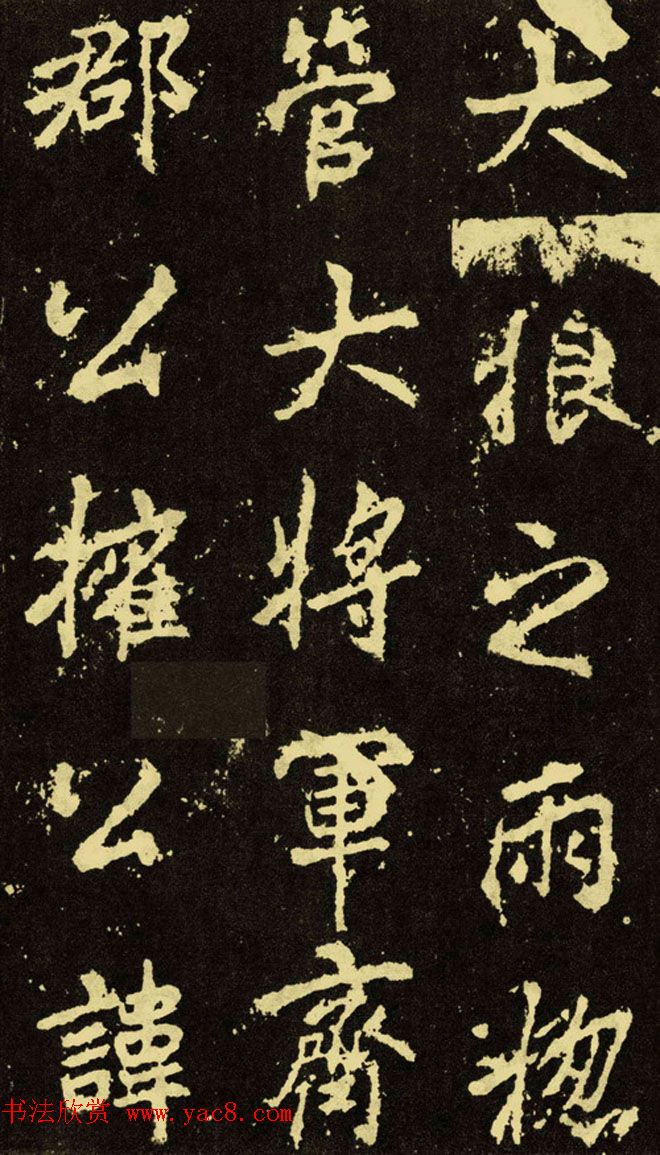 大狼之兩揔
管大將軍齊
郡公擢公諱
书法欣赏 www.yac8.com